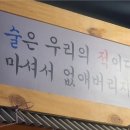 술은 우리의 적이다
마셔서 없애버리자